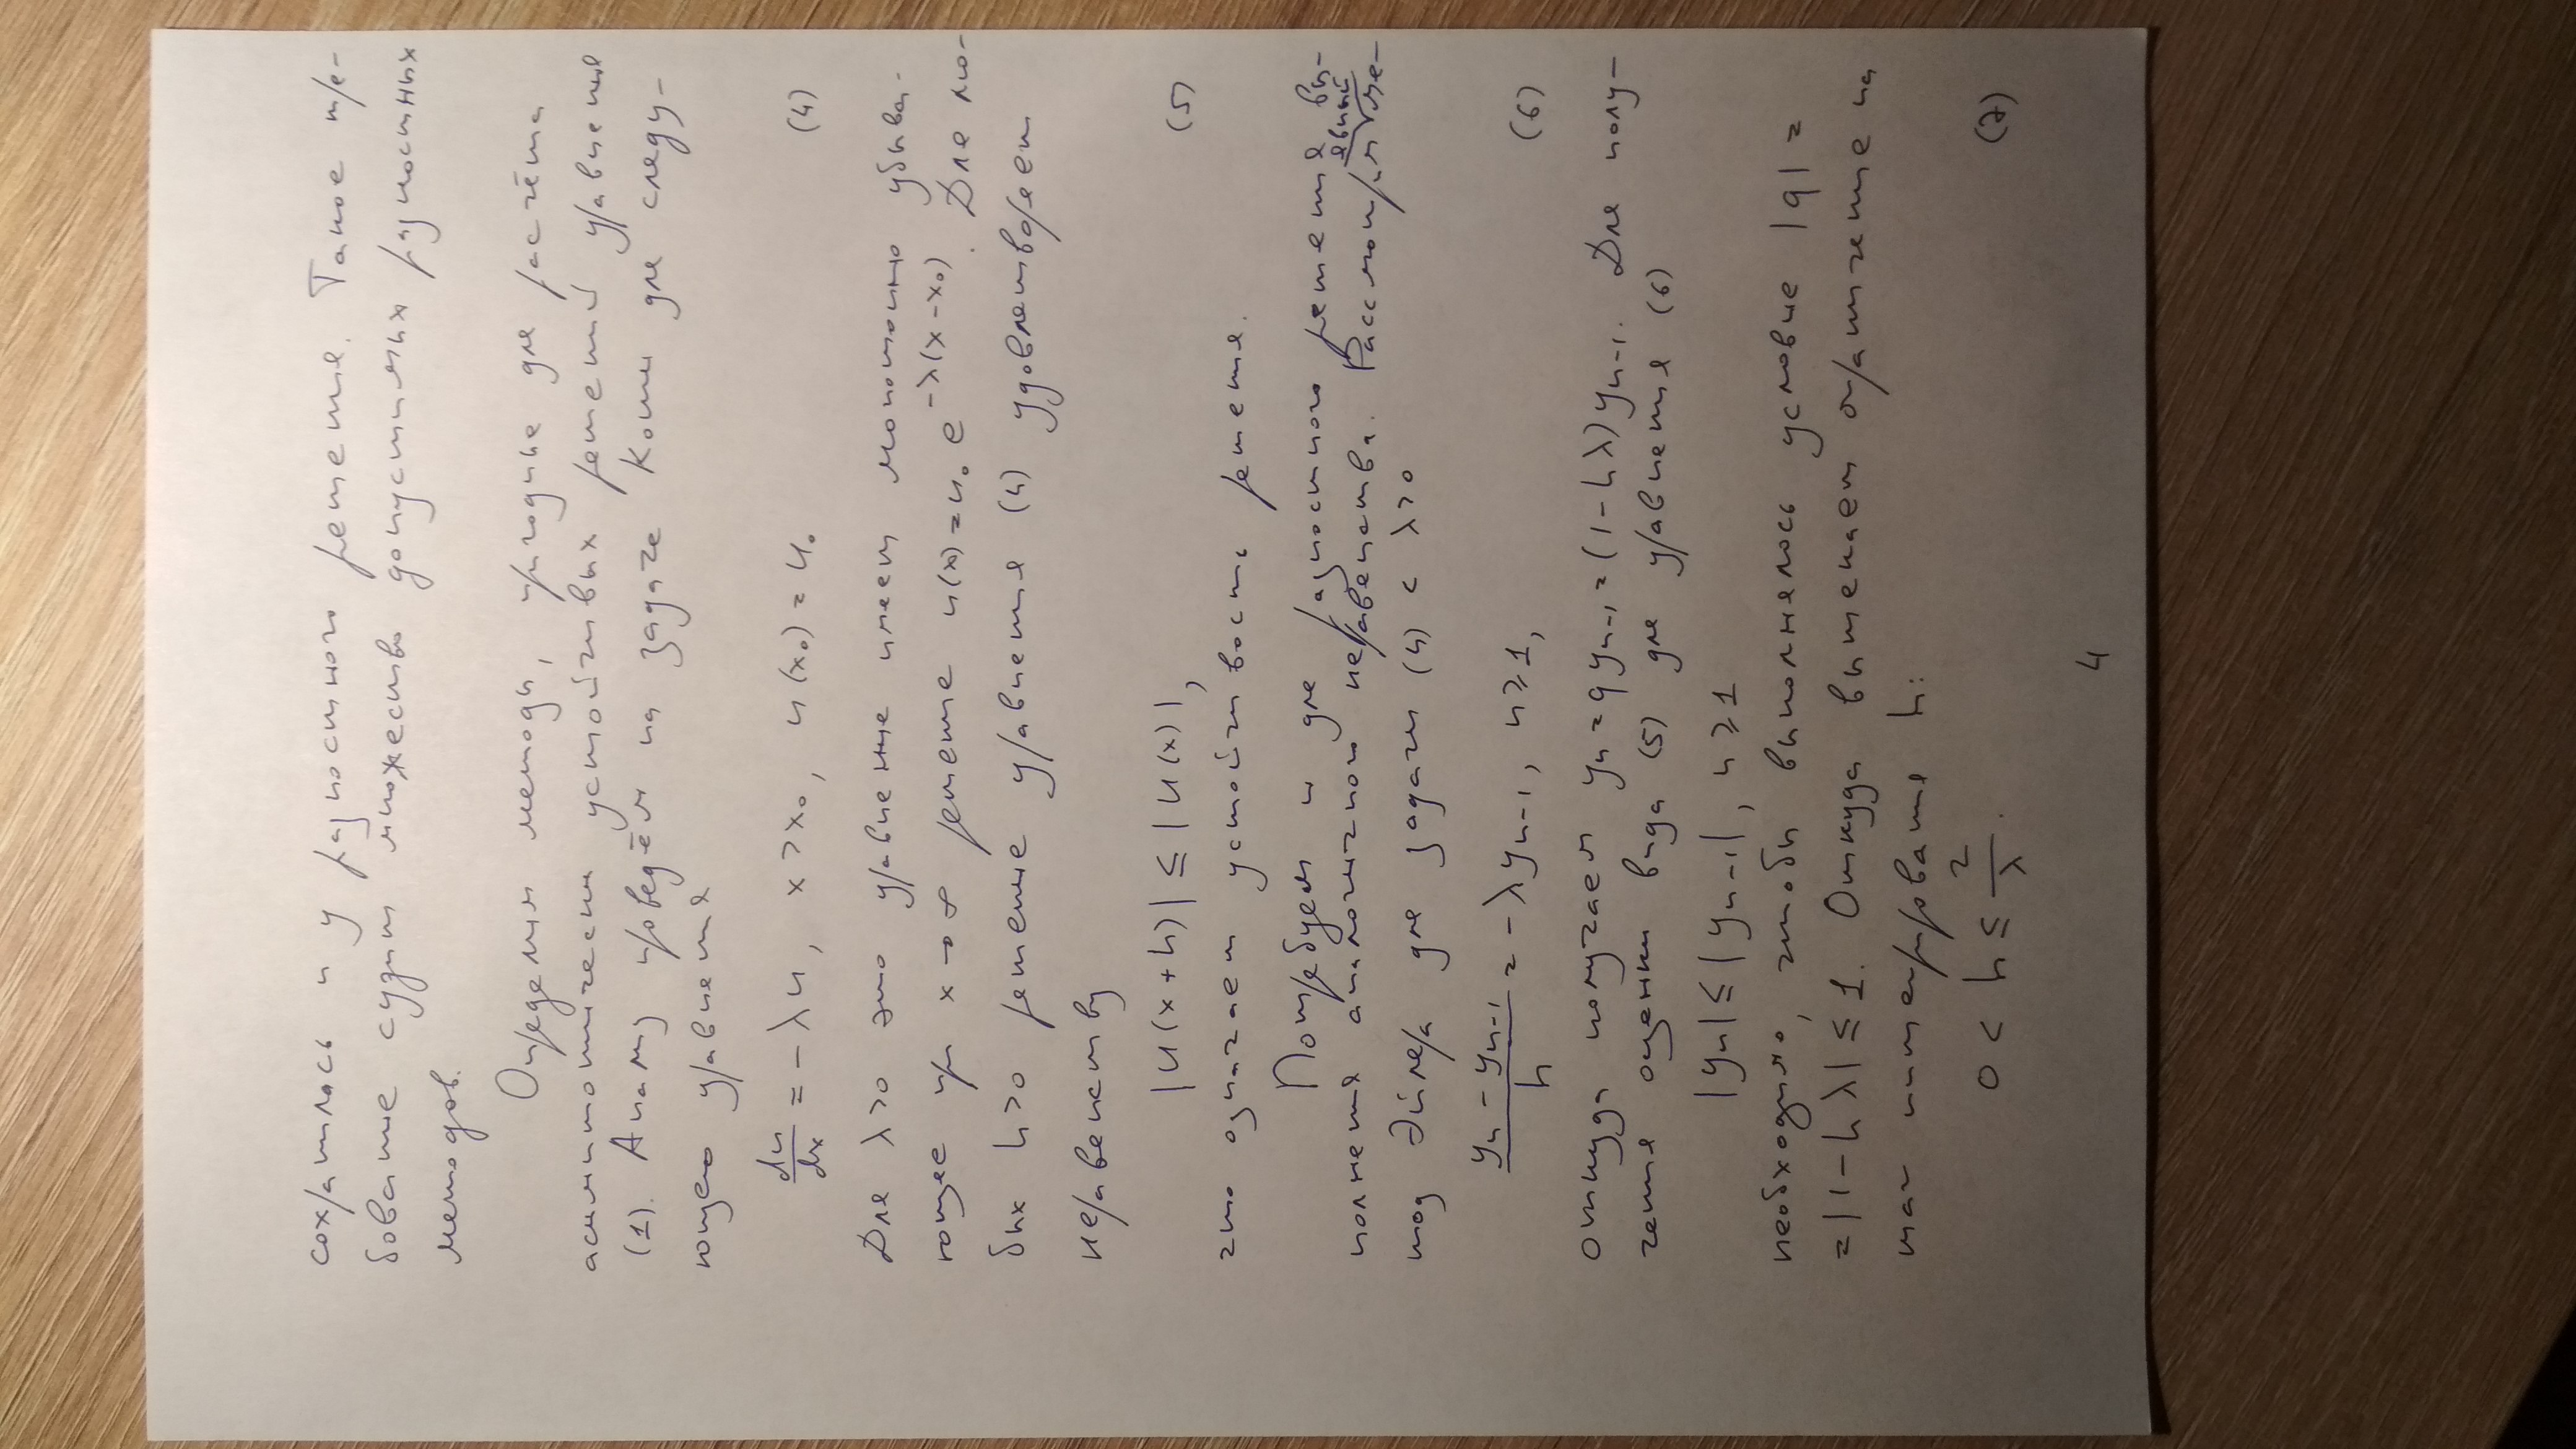 сохранилась и у разностного решения. Такое тре-
бование сузит множество допустимых разностных
методов.
Определим методы, пригодные для расчёта
асимптотически устойчивых решений уравнения
(1). Анализ проведём на задаче Коши для следу-
ющего уравнения
du/dx = -λu, x > x₀, u(x₀) = u₀ (4)
Для λ>0 это уравнение имеет монотонно убыва-
ющее при x→∞ решение u(x)=u₀e^{-λ(x-x₀)}. Для лю-
бых h>0 решение уравнения (4) удовлетворяет
неравенству
|u(x+h)| ≤ |u(x)|, (5)
что означает устойчивость решения.
Потребуем и для разностного решения вы-
полнения аналогичного неравенства. Рассмотрим явный ме-
тод Эйлера для задачи (4) с λ>0
(yₙ - yₙ₋₁)/h = -λyₙ₋₁, n≥1, (6)
откуда получаем yₙ = qyₙ₋₁ = (1-hλ)yₙ₋₁. Для полу-
чения оценки вида (5) для уравнения (6)
|yₙ| ≤ |yₙ₋₁|, n≥1
необходимо, чтобы выполнялось условие |q| =
= |1-hλ| ≤ 1. Откуда вытекает ограничение на
шаг интегрирования h:
0 < h ≤ 2/λ. (7)
4